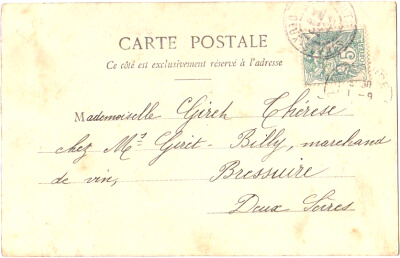 CARTE POSTALE
Ce côté est exclusivement réservé à l'adresse
Mademoiselle Girch Thérèse
chez Mr Giret-Billy, marchand
de vin, Bressuire
Deux Sèvres